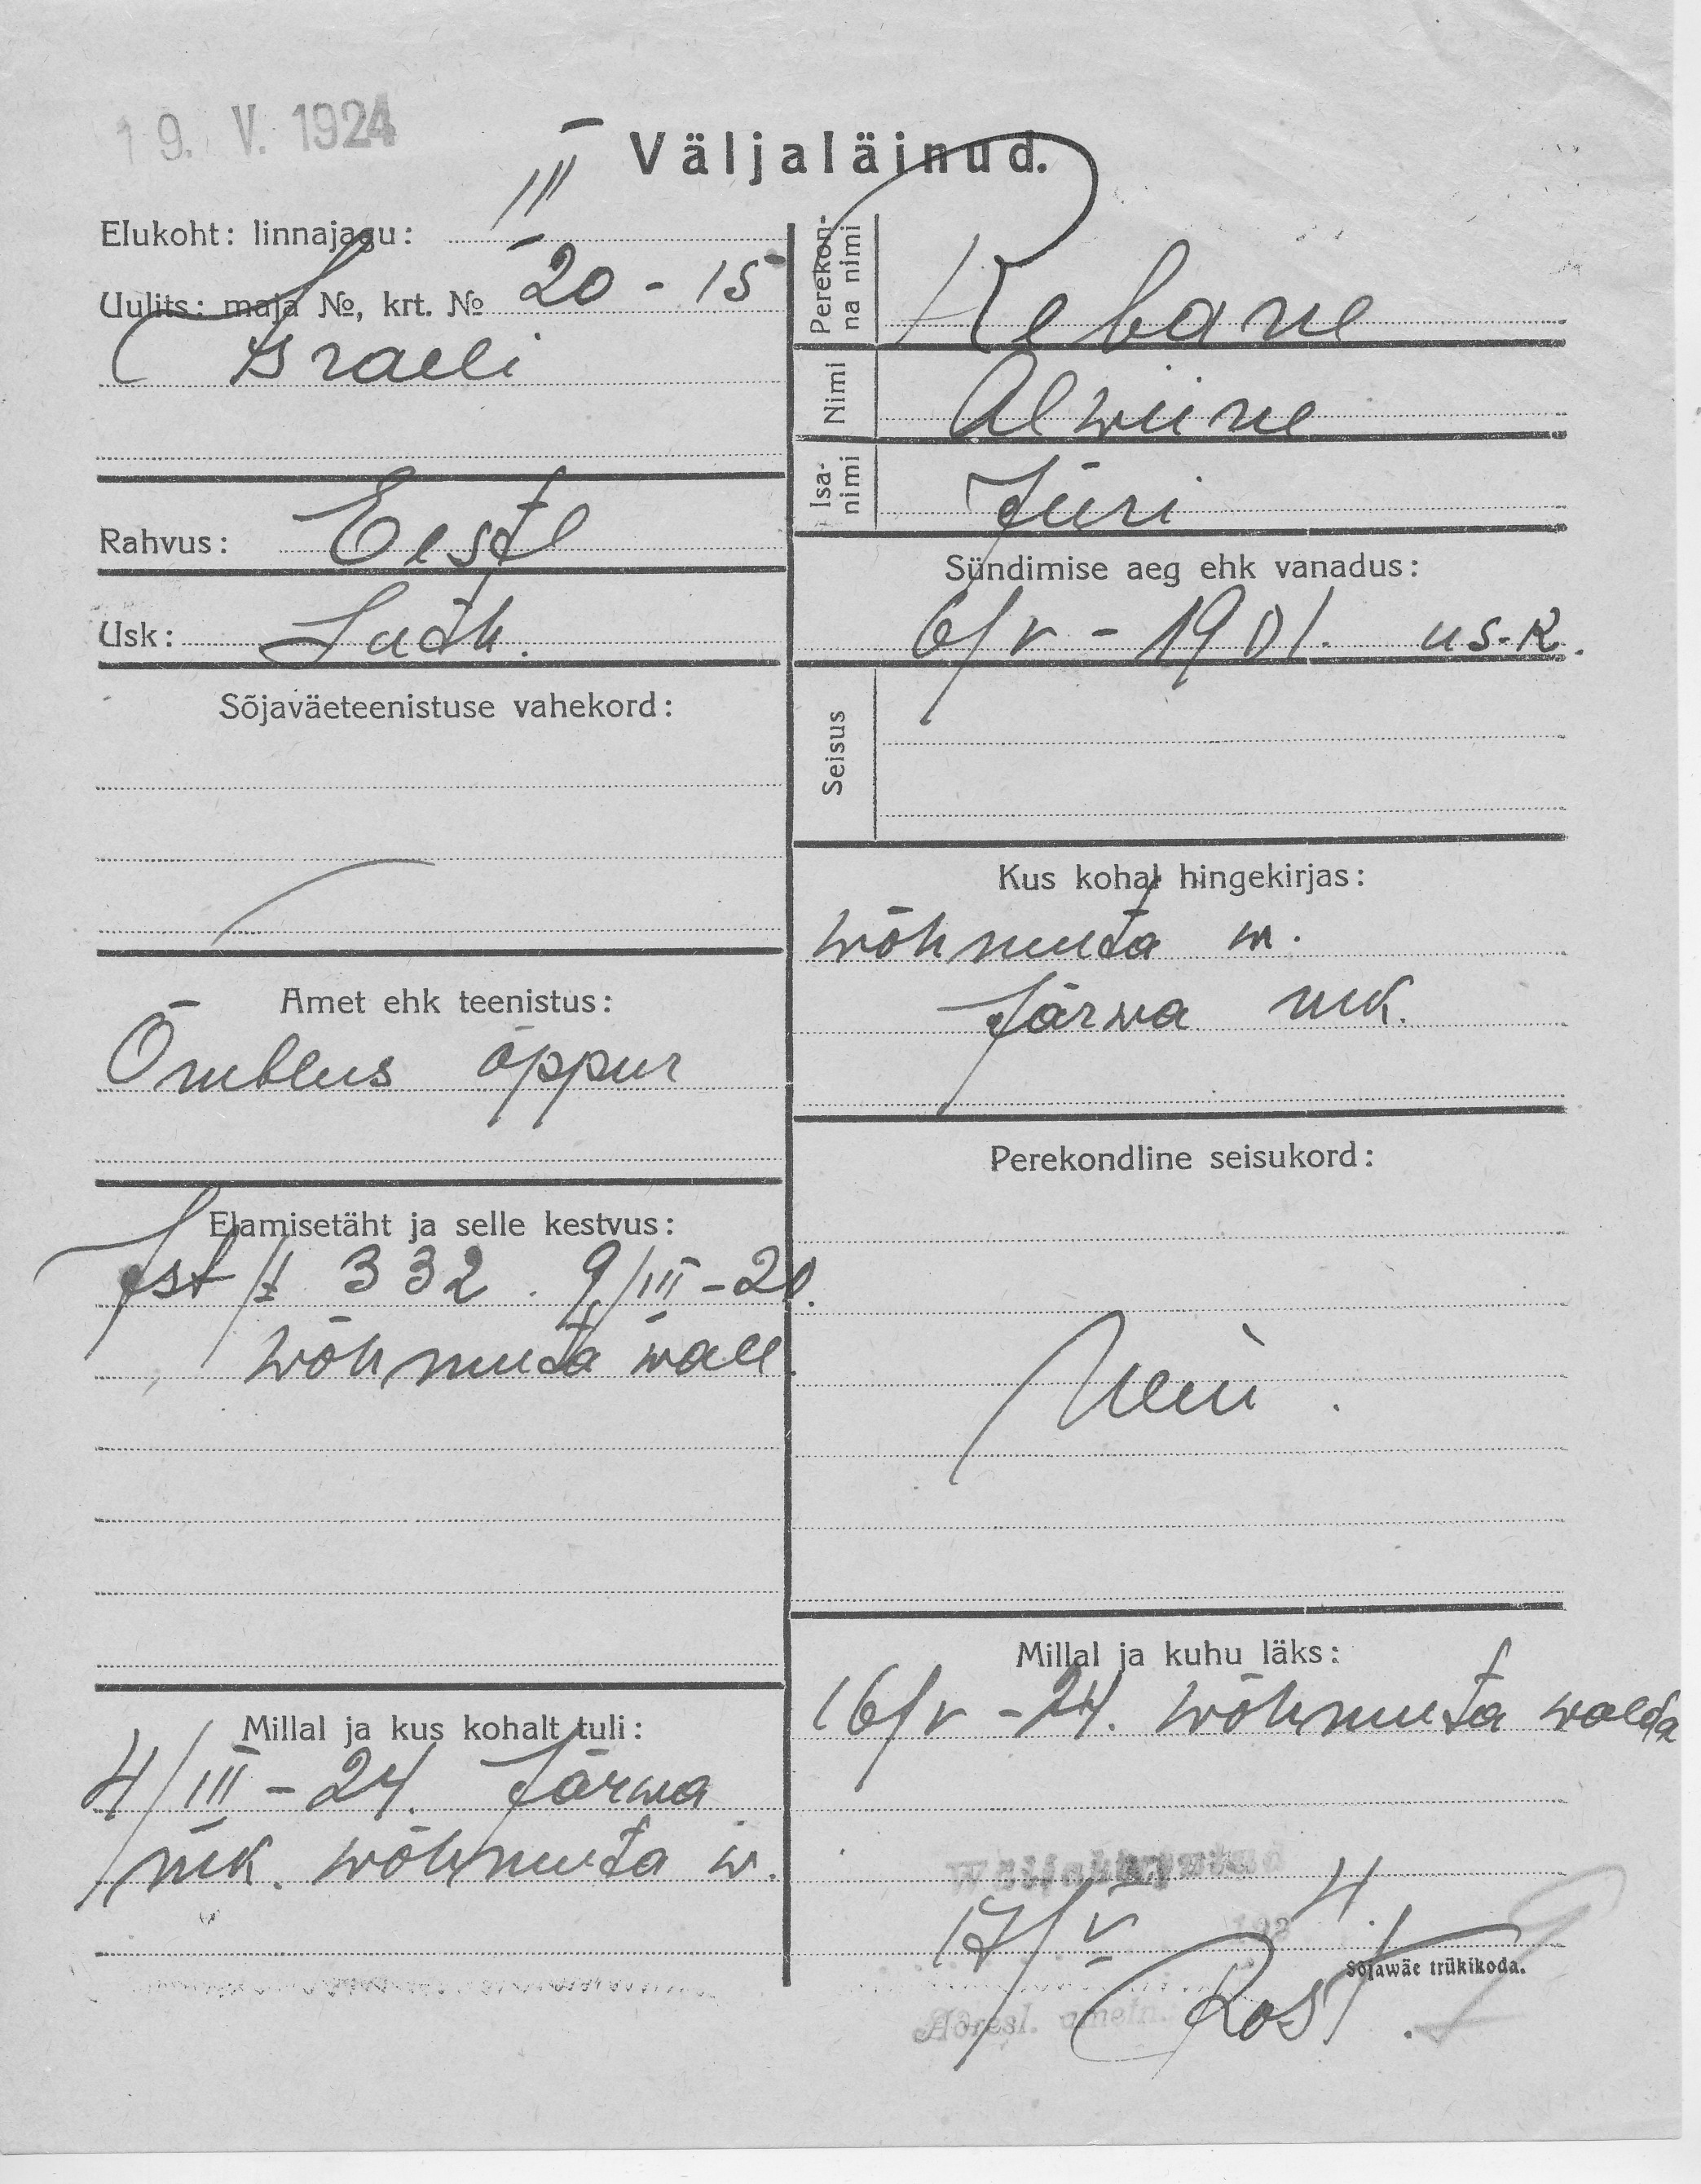 19. V. 1924
Väljaläinud.
Elukoht: linnajagu: III
Uulits: maja №, krt. № 20 - 15
Israeli
Rahvus: Eesti
Usk: Luth.
Sõjaväeteenistuse vahekord:
Amet ehk teenistus:
Õmblus õppur
Elamisetäht ja selle kestvus:
Ist # 332. 9/III-20.
Wõhmuta wall.
Millal ja kus kohalt tuli:
4/III-24. Järwa
mk. Wõhmuta w.
Perekonna nimi
Rebane
Nimi
Alwiine
Isanimi
Jüri
Sündimise aeg ehk vanadus:
6/V - 1901. us.k.
Seisus
Kus kohal hingekirjas:
Wõhmuta w.
Järwa mk.
Perekondline seisukord:
Neiu.
Millal ja kuhu läks:
16/V - 24. Wõhmuta walda
17/V 1924.
Adresl. ametn. Rost.
Sõjawäe trükikoda.